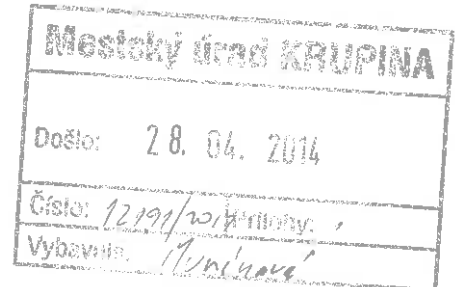 Mestský úrad KRUPINA
Došlo: 28. 04. 2014
Číslo: 12191/2014 Prílohy: 1
Vybavuje: